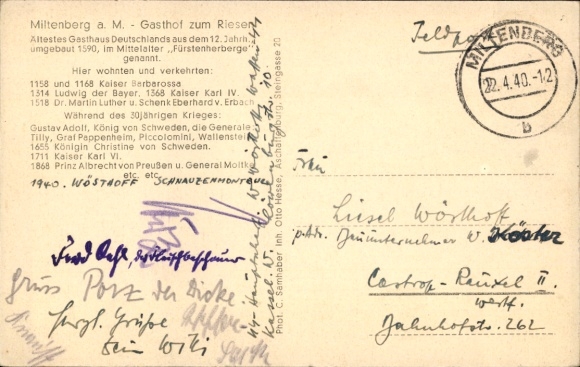 Miltenberg a. M. - Gasthof zum Riesen
Ältestes Gasthaus Deutschlands aus dem 12. Jahrh.
umgebaut 1590, im Mittelalter „Fürstenherberge"
genannt.
Hier wohnten und verkehrten:
1158 und 1168 Kaiser Barbarossa
1314 Ludwig der Bayer, 1368 Kaiser Karl IV.
1518 Dr. Martin Luther u. Schenk Eberhard v. Erbach
Während des 30jährigen Krieges:
Gustav Adolf, König von Schweden, die Generale
Tilly, Graf Pappenheim, Piccolomini, Wallenstein
1655 Königin Christine von Schweden.
1711 Kaiser Karl VI.
1868 Prinz Albrecht von Preußen u. General Moltke
etc. etc.
1940. WÖSTHOFF SCHNAUZENMONTEUR
Gruss Porz der Dicke
Herzl. Grüße
Dein Willi
Phot. C. Samhaber Inh. Otto Hesse, Aschaffenburg, Steingasse 20
Feldpost
MILTENBERG
22.4.40.-12
b
Frau
Liesel Wösthoff
p. Adr. Bauunternehmer W. Köster
Castrop-Rauxel II.
Westf.
Bahnhofstr. 262